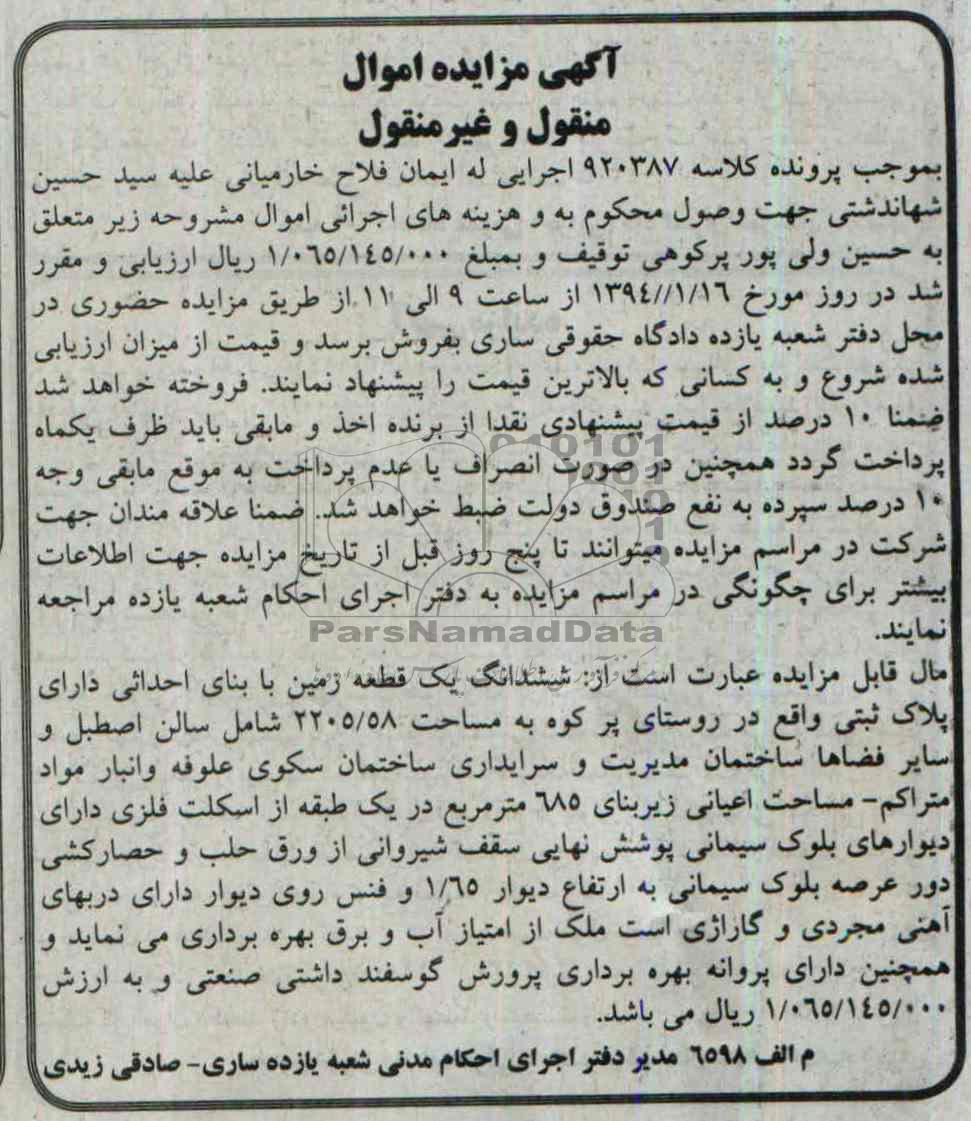 آگهی مزایده اموال
منقول و غیرمنقول
بموجب پرونده کلاسه ۹۲۰۳۸۷ اجرایی له ایمان فلاح خارمیانی علیه سید حسین
شهاندشتی جهت وصول محکوم به و هزینه های اجرائی اموال مشروحه زیر متعلق
به حسین ولی پور پرکوهی توقیف و بمبلغ ۱/۰۶۵/۱۴۵/۰۰۰ ریال ارزیابی و مقرر
شد در روز مورخ ۱۳۹۴//۱/۱۶ از ساعت ۹ الی ۱۱ از طریق مزایده حضوری در
محل دفتر شعبه یازده دادگاه حقوقی ساری بفروش برسد و قیمت از میزان ارزیابی
شده شروع و به کسانی که بالاترین قیمت را پیشنهاد نمایند. فروخته خواهد شد
ضمنا ۱۰ درصد از قیمت پیشنهادی نقدا از برنده اخذ و مابقی باید ظرف یکماه
پرداخت گردد همچنین در صورت انصراف یا عدم پرداخت به موقع مابقی وجه
۱۰ درصد سپرده به نفع صندوق دولت ضبط خواهد شد. ضمنا علاقه مندان جهت
شرکت در مراسم مزایده میتوانند تا پنج روز قبل از تاریخ مزایده جهت اطلاعات
بیشتر برای چگونگی در مراسم مزایده به دفتر اجرای احکام شعبه یازده مراجعه
نمایند.
ParsNamadData
مال قابل مزایده عبارت است از: ششدانگ یک قطعه زمین با بنای احداثی دارای
پلاک ثبتی واقع در روستای پر کوه به مساحت ۲۲۰۵/۵۸ شامل سالن اصطبل و
سایر فضاها ساختمان مدیریت و سرایداری ساختمان سکوی علوفه وانبار مواد
متراکم- مساحت اعیانی زیربنای ۶۸۵ مترمربع در یک طبقه از اسکلت فلزی دارای
دیوارهای بلوک سیمانی پوشش نهایی سقف شیروانی از ورق حلب و حصارکشی
دور عرصه بلوک سیمانی به ارتفاع دیوار ۱/۶۵ و فنس روی دیوار دارای دربهای
آهنی مجردی و گاراژی است ملک از امتیاز آب و برق بهره برداری می نماید و
همچنین دارای پروانه بهره برداری پرورش گوسفند داشتی صنعتی و به ارزش
۱/۰۶۵/۱۴۵/۰۰۰ ریال می باشد.
م الف ۶۵۹۸ مدیر دفتر اجرای احکام مدنی شعبه یازده ساری- صادقی زیدی